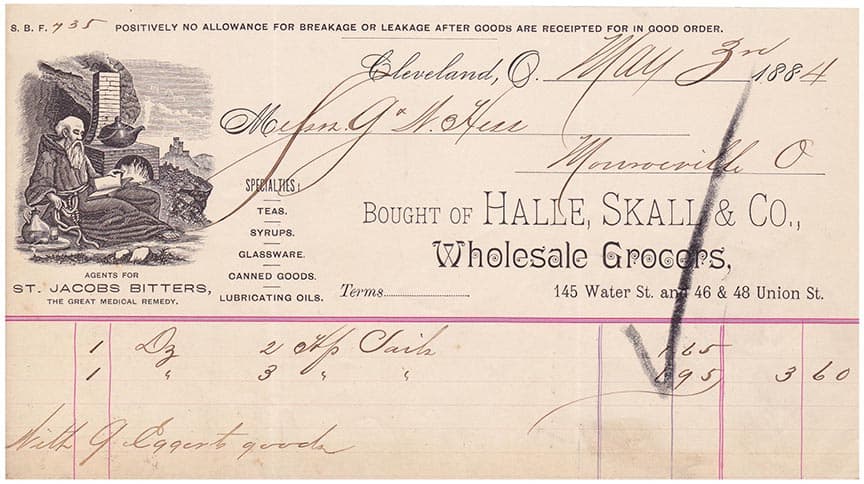 S. B. F. 735 POSITIVELY NO ALLOWANCE FOR BREAKAGE OR LEAKAGE AFTER GOODS ARE RECEIPTED FOR IN GOOD ORDER.
Cleveland, O. May 3rd 1884
Messrs. G & N. Hess
Monroeville O
SPECIALTIES:
TEAS.
SYRUPS.
GLASSWARE.
CANNED GOODS.
LUBRICATING OILS.
AGENTS FOR
ST. JACOBS BITTERS,
THE GREAT MEDICAL REMEDY.
BOUGHT OF HALLE, SKALL & CO.,
Wholesale Grocers,
Terms 145 Water St. and 46 & 48 Union St.
1 Dz 2 Hp Pails 1 65
1 " 3 " " 1 95 3 60
With G Eggerts goods